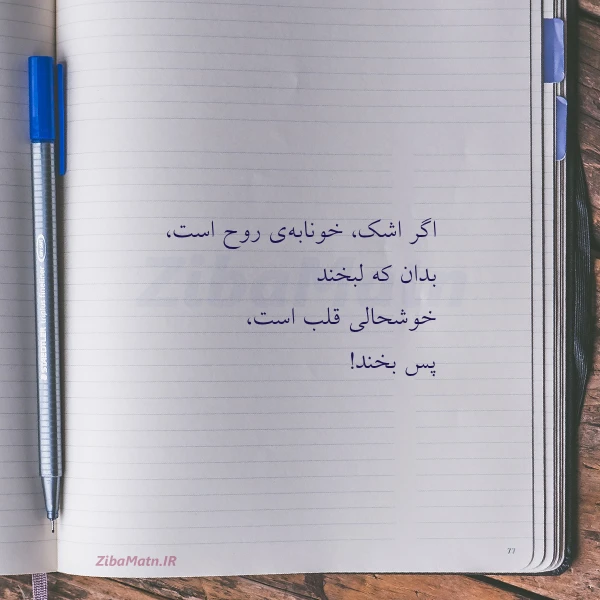 اگر اشک، خونابه‌ی روح است،
بدان که لبخند
خوشحالی قلب است،
پس بخند!
ZibaMatn
77
ZibaMatn.IR